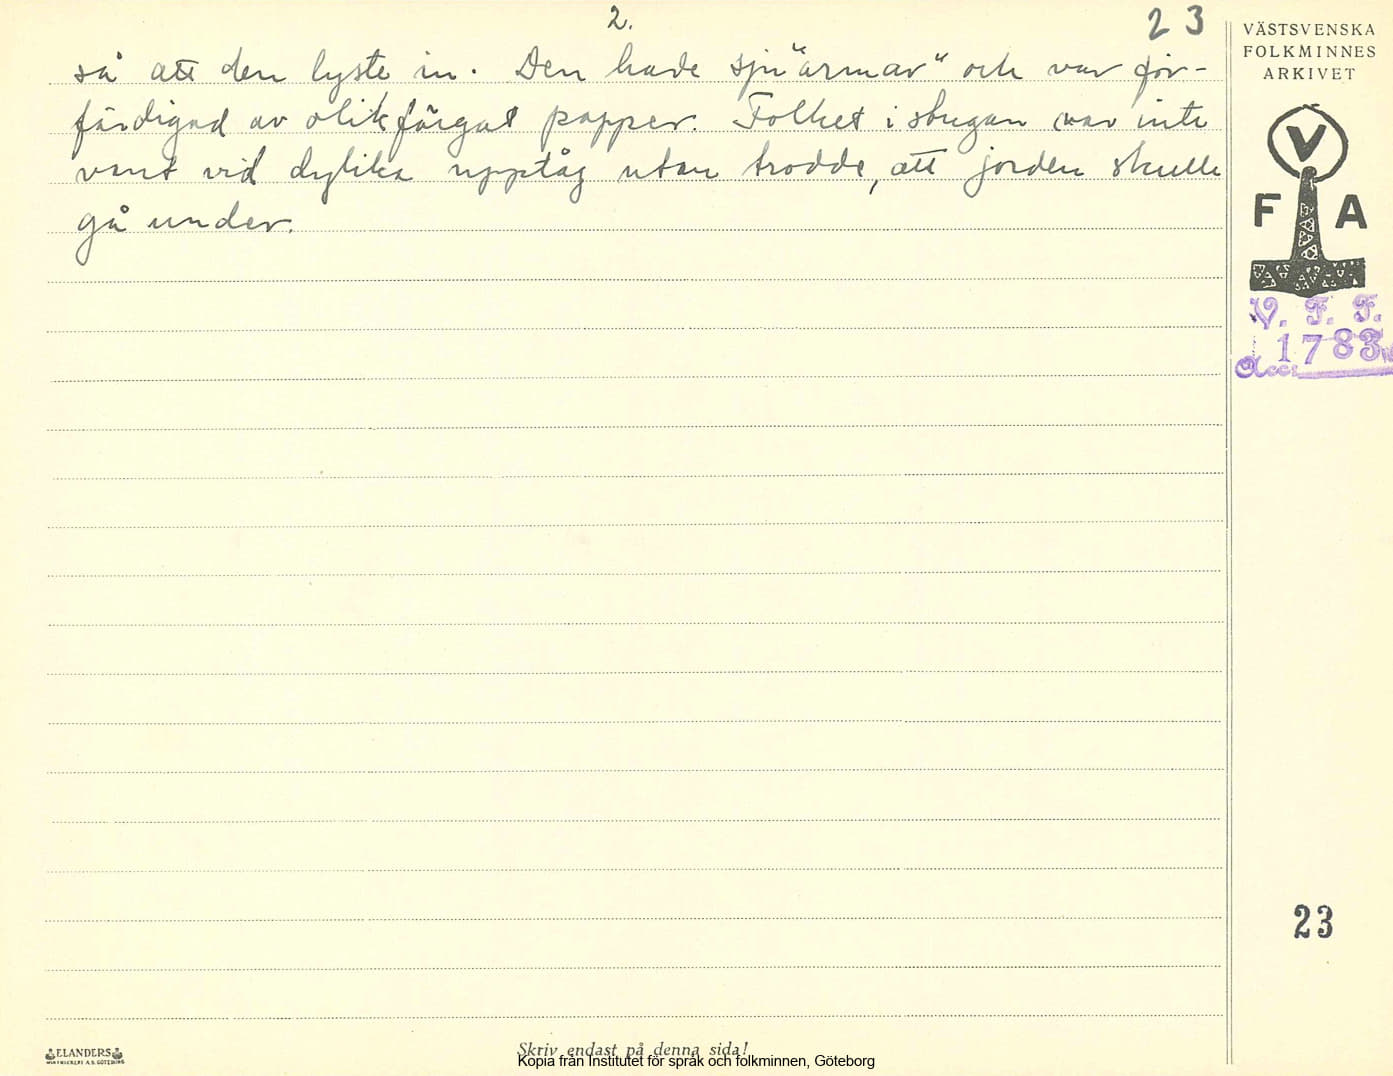 2.
23
så att den lyste in. Den hade sju "armar" och var för-
färdigad av olikfärgat papper. Folket i stugan var inte
vant vid dylika upptåg utan trodde, att jorden skulle
gå under.
VÄSTSVENSKA
FOLKMINNES
ARKIVET
V
F A
V. F. F.
1783
Acc:
23
ELANDERS
Skriv endast på denna sida!
Kopia från Institutet för språk och folkminnen, Göteborg